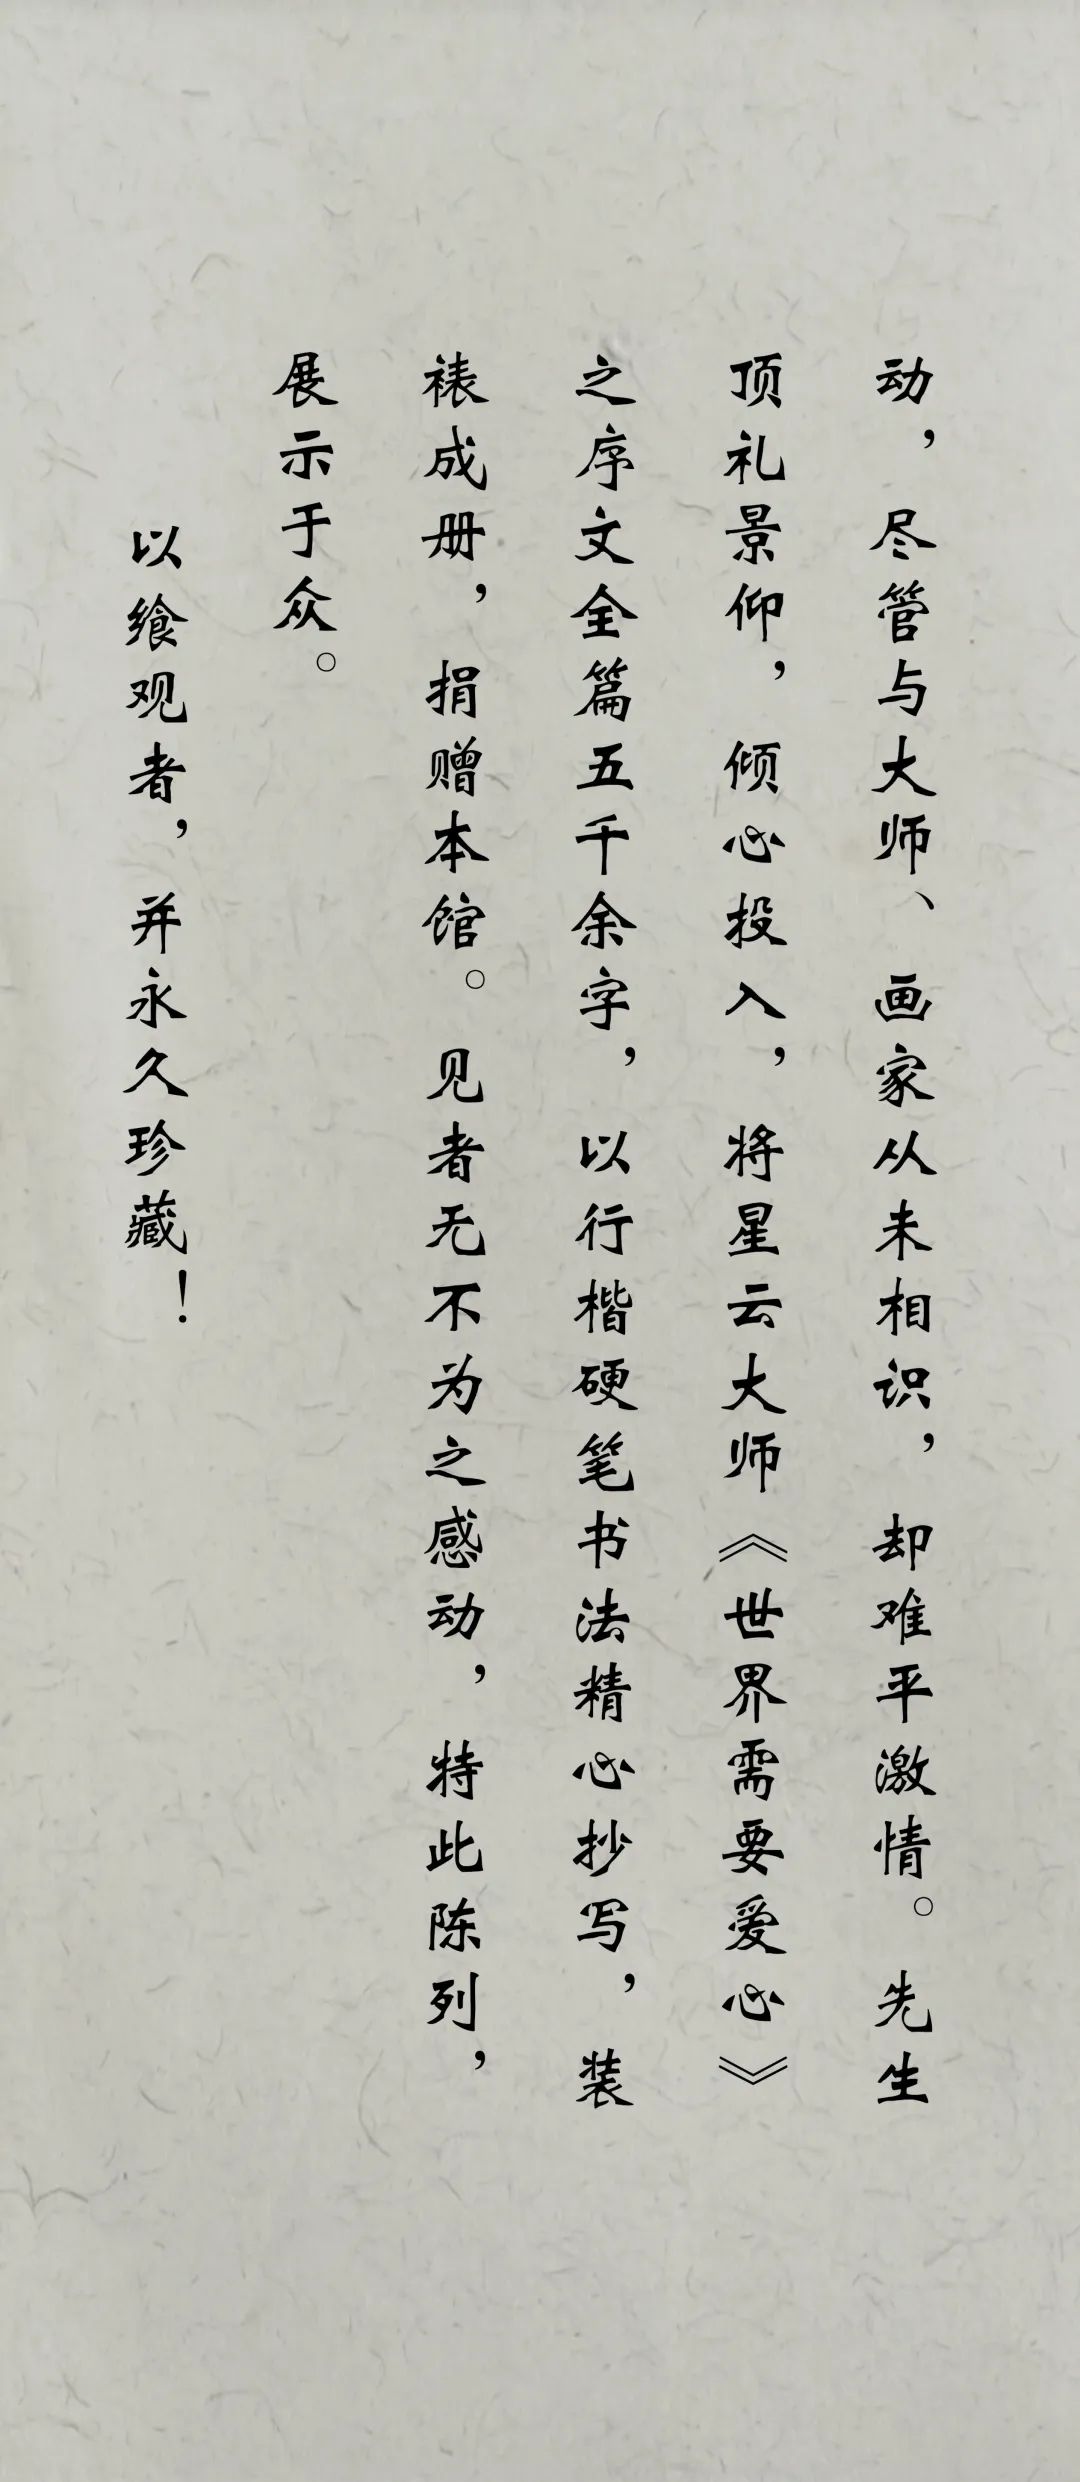 动，尽管与大师、画家从未相识，却难平激情。先生
顶礼景仰，倾心投入，将星云大师《世界需要爱心》
之序文全篇五千余字，以行楷硬笔书法精心抄写，装
裱成册，捐赠本馆。见者无不为之感动，特此陈列，
展示于众。
以飨观者，并永久珍藏！